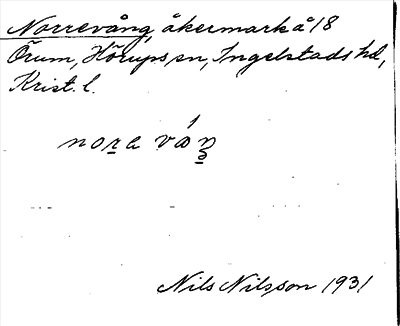 Norrevång, åkermark å 18
Örum, Hörups sn, Ingelstads hd,
Krist. l.
nora ván
Nils Nilsson 1931